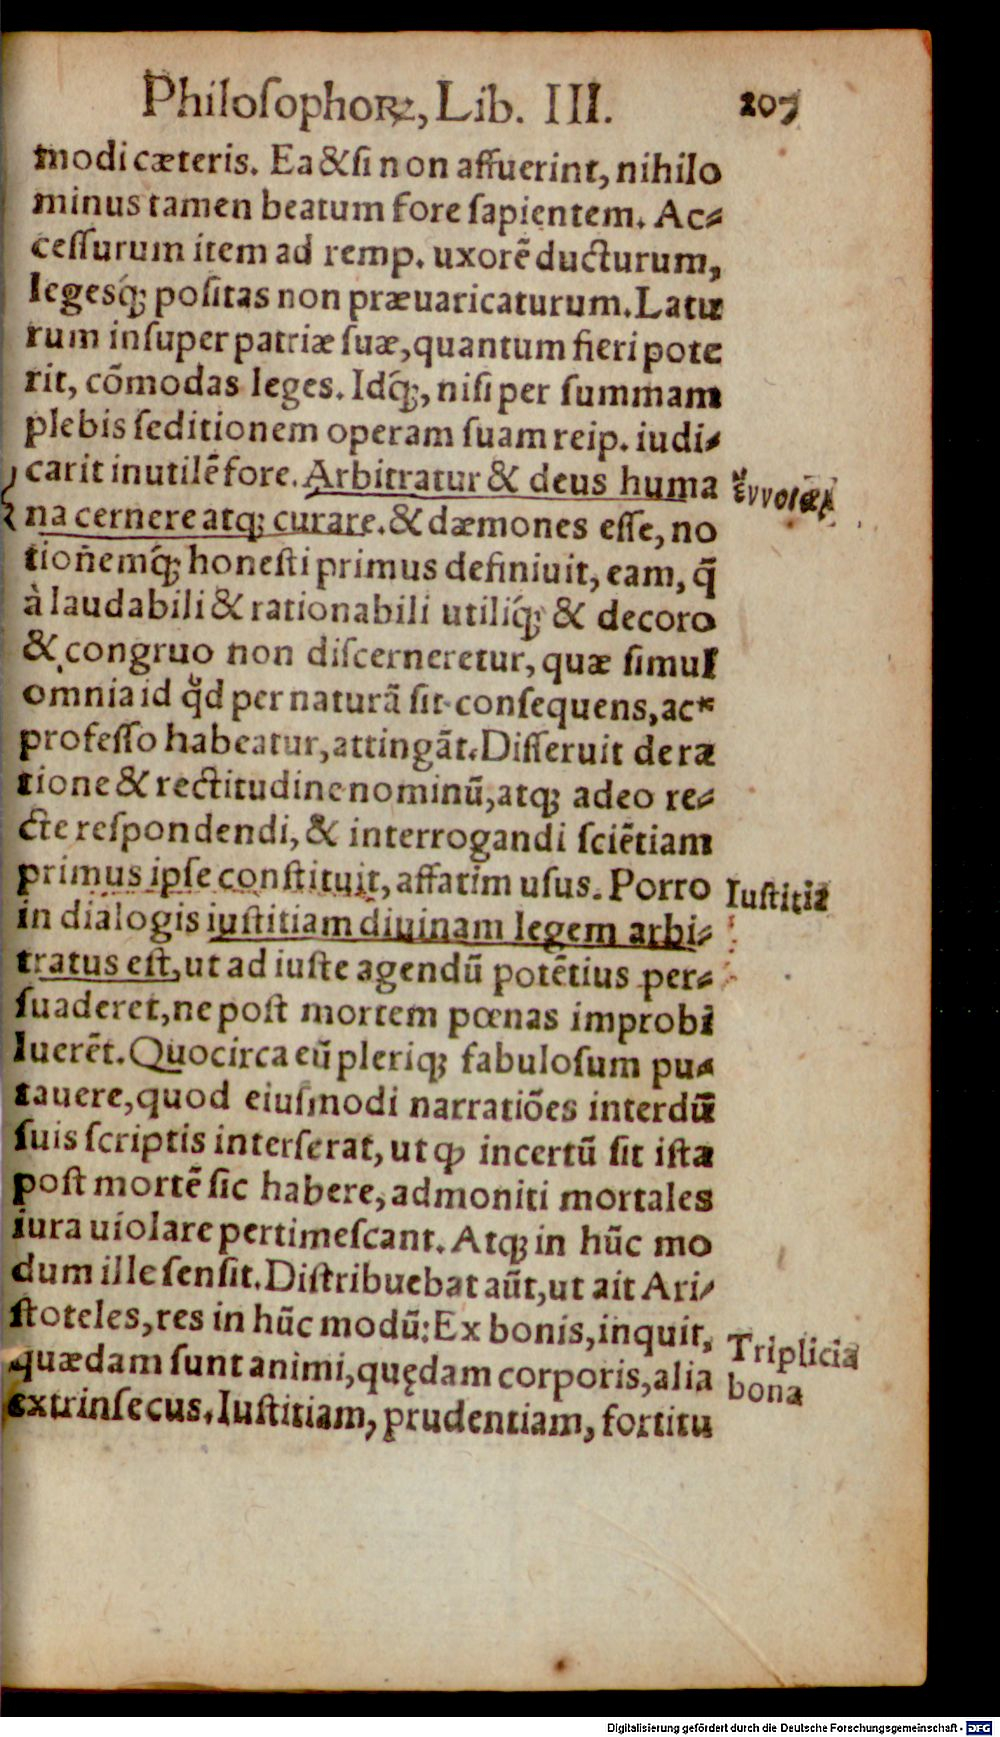 Philoſophoꝝ, Lib. III. 207
modi cæteris. Ea &ſi non affuerint, nihilo
minus tamen beatum fore ſapientem. Ac⸗
ceſſurum item ad remp. uxorē ducturum,
legesq́; poſitas non præuaricaturum. Latu
rum inſuper patriæ ſuæ, quantum fieri pote
rit, cōmodas leges. Idq́;, niſi per ſummam
plebis ſeditionem operam ſuam reip. iudi⸗
carit inutilē fore. Arbitratur & deus huma
ἔννοιαι
na cernere atq; curare. & dæmones eſſe, no
tionemq́; honeſti primus definiuit, eam, q̄
à laudabili & rationabili utiliq́; & decoro
& congruo non diſcerneretur, quæ ſimul
omnia id qd per naturā ſit conſequens, ac*
profeſſo habeatur, attingāt. Differuit de ra
tione & rectitudine nominū, atq; adeo re⸗
cte reſpondendi, & interrogandi ſciētiam
primus ipſe conſtituit, affatim uſus. Porro
Iuſtitia
in dialogis iuſtitiam diuinam legem arbi⸗
tratus eſt, ut ad iuſte agendū potētius per⸗
ſuaderet, ne poſt mortem pœnas improbi
luerēt. Quocirca eū pleriq; fabuloſum pu⸗
tauere, quod eiuſmodi narratiōes interdū
ſuis ſcriptis interſerat, ut ꝙ incertū ſit iſta
poſt mortē ſic habere, admoniti mortales
iura uiolare pertimeſcant. Atq; in hūc mo
dum ille ſenſit. Diſtribuebat aūt, ut ait Ari⸗
ſtoteles, res in hūc modū: Ex bonis, inquit,
Triplicia
quædam ſunt animi, quędam corporis, alia
bona
extrinſecus. Iuſtitiam, prudentiam, fortitu
Digitalisierung gefördert durch die Deutsche Forschungsgemeinschaft - DFG